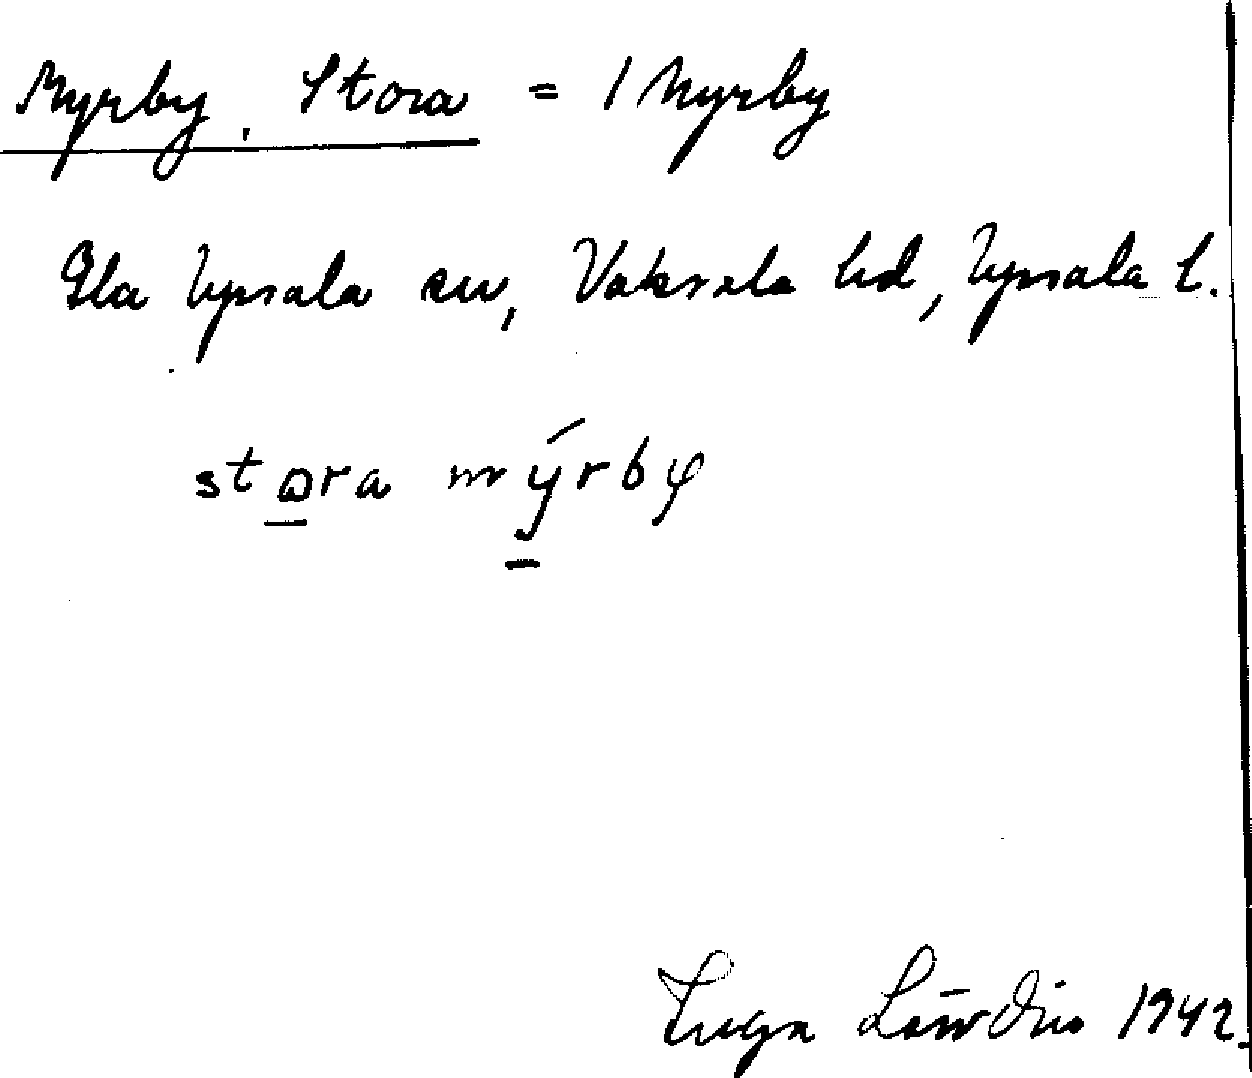 Myrby, Stora = 1 Myrby
Gla Upsala sn, Vaksala hd, Upsala l.
stɷra mýrbyφ
Inga 1942.